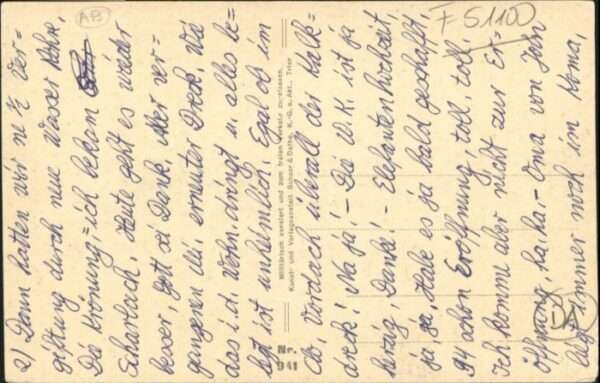 2) Dann hatten wir ne ½ Ver=
giftung durch Wasser Rohr.
Die Krönung = ich bekam
Scharlach. Heute geht es wieder
besser, Gott sei Dank. Aber ver=
gangenen Mi. erneuter Dreck. Wie
das i.d. Wohn. drängt u. alles be=
legt ist unheimlich. Egal ob im
Militärisch zensiert und zum freien Versand zugelassen.
Kunst- und Verlagsanstalt Schaar & Dathe, K.-G. a. Akt., Trier
Nr.
941
Ob. Vordach überall der Kalk=
dreck! Na ja! - Die W.K. ist ja
Danke! - Elefantenhochzeit,
ja, ja. Habe es ja bald geschafft,
94 schon Eröffnung, toll, toll.
Ich komme aber nicht zur Er=
öffnung ha.ha. - Oma von Jean
liegt immer noch im Koma,
AB
F 51100
DA